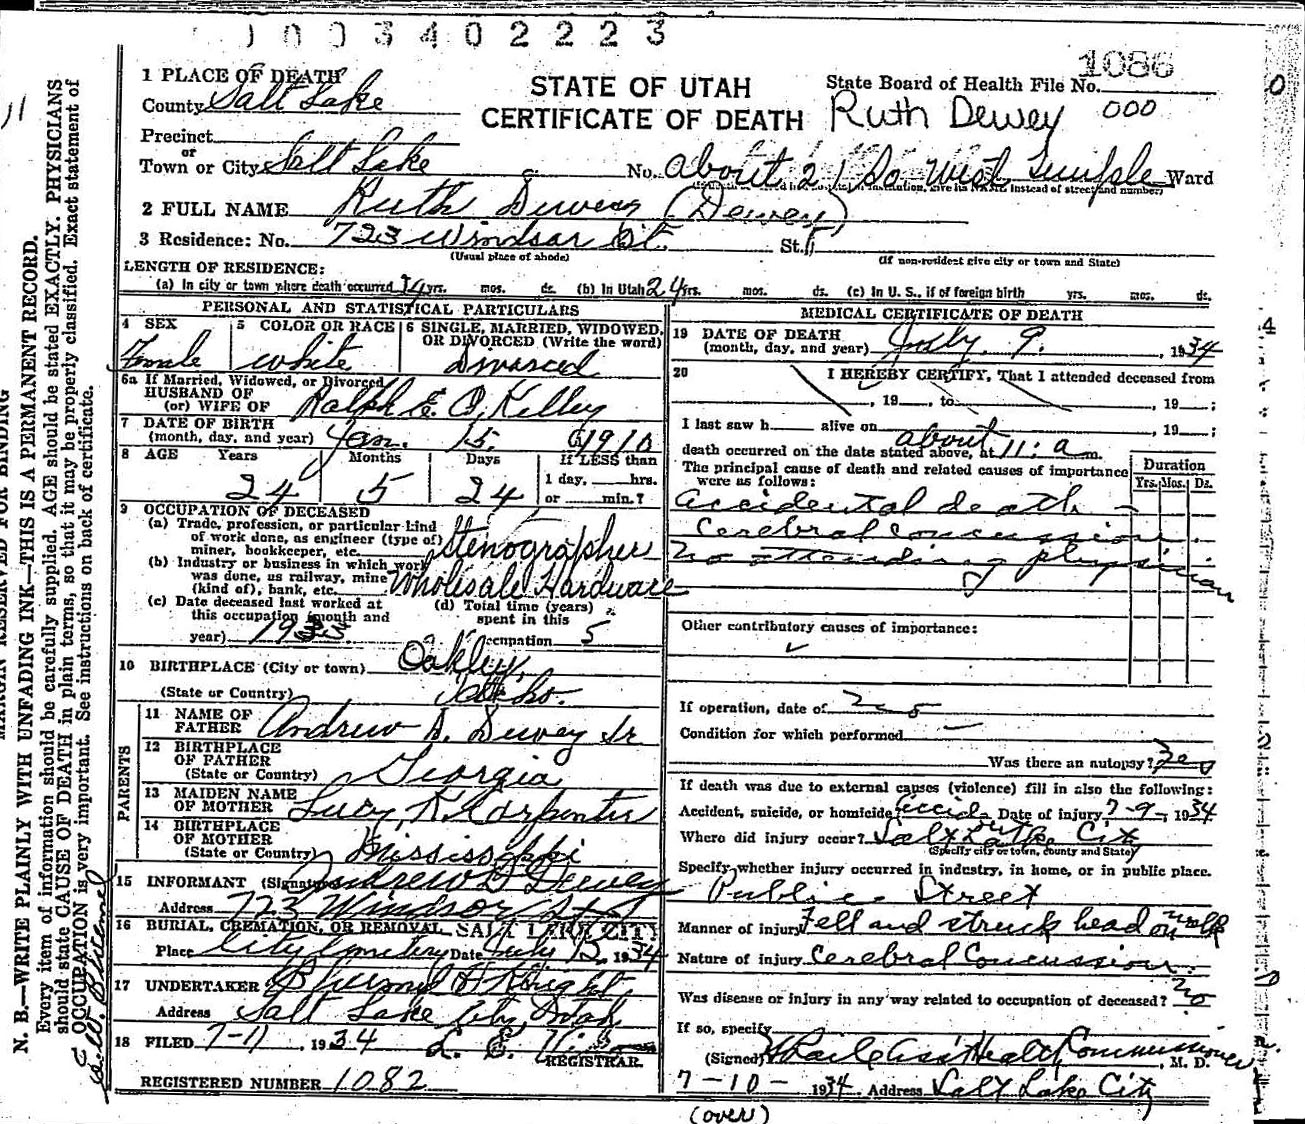 0003402223
1086
STATE OF UTAH
CERTIFICATE OF DEATH
State Board of Health File No.
Ruth Dewey 000
1 PLACE OF DEATH
County Salt Lake
Precinct
or
Town or City Salt Lake No. about 21 So West Temple Ward
2 FULL NAME Ruth Dewey (Dewey)
3 Residence: No. 723 Windsor St. St.
(Usual place of abode) (If non-resident give city or town and State)
LENGTH OF RESIDENCE:
(a) In city or town where death occurred yrs. mos. ds. (b) In Utah 24 yrs. mos. ds. (c) In U. S., if of foreign birth yrs. mos. ds.
PERSONAL AND STATISTICAL PARTICULARS
4 SEX
Female
5 COLOR OR RACE
white
6 SINGLE, MARRIED, WIDOWED,
OR DIVORCED (Write the word)
Divorced
6a If Married, Widowed, or Divorced
HUSBAND OF
(or) WIFE OF Ralph E. O'Kelley
7 DATE OF BIRTH
(month, day, and year) Jan. 15 1910
8 AGE Years Months Days If LESS than
24 5 24
1 day, hrs.
or min.?
9 OCCUPATION OF DECEASED
(a) Trade, profession, or particular kind
of work done, as engineer (type of)
miner, bookkeeper, etc. Stenographer
(b) Industry or business in which work
was done, us railway, mine
(kind of), bank, etc. Wholesale Hardware
(c) Date deceased last worked at
this occupation (month and
year) 1933
(d) Total time (years)
spent in this
occupation 5
10 BIRTHPLACE (City or town) Oakley,
(State or Country) Idaho.
PARENTS
11 NAME OF
FATHER Andrew D. Dewey Sr
12 BIRTHPLACE
OF FATHER
(State or Country) Georgia
13 MAIDEN NAME
OF MOTHER Lucy K. Carpenter
14 BIRTHPLACE
OF MOTHER
(State or Country) Mississippi
15 INFORMANT (Signature) Andrew D Dewey
Address 723 Windsor St
16 BURIAL, CREMATION, OR REMOVAL, SALT LAKE CITY
Place City Cemetery Date July 1934
17 UNDERTAKER
Address Salt Lake City Utah
18 FILED 7-11, 1934
REGISTRAR.
REGISTERED NUMBER 1082
MEDICAL CERTIFICATE OF DEATH
19 DATE OF DEATH
(month, day, and year) July 9. , 1934
20 I HEREBY CERTIFY, That I attended deceased from
, 19 , to , 19 ;
I last saw h alive on , 19 ;
death occurred on the date stated above, at about 11: a m.
The principal cause of death and related causes of importance
were as follows:
Duration
Yrs. Mos. Ds.
accidental death -
Cerebral Concussion.
No attending physician
Other contributory causes of importance:
If operation, date of no
Condition for which performed
Was there an autopsy?
If death was due to external causes (violence) fill in also the following:
Accident, suicide, or homicide? accid. Date of injury 7-9-, 1934
Where did injury occur? Salt Lake City
(Specify city or town, county and State)
Specify whether injury occurred in industry, in home, or in public place.
Public Street
Manner of injury Fell and struck head on walk
Nature of injury Cerebral Concussion.
Was disease or injury in any way related to occupation of deceased? no
If so, specify
(Signed) Health Commissioner, M. D.
7-10- 1934. Address Salt Lake City
(over)
MARGIN RESERVED FOR BINDING
N. B.—WRITE PLAINLY WITH UNFADING INK—THIS IS A PERMANENT RECORD.
Every item of information should be carefully supplied. AGE should be stated EXACTLY. PHYSICIANS
should state CAUSE OF DEATH in plain terms, so that it may be properly classified. Exact statement of
OCCUPATION is very important. See instructions on back of certificate.